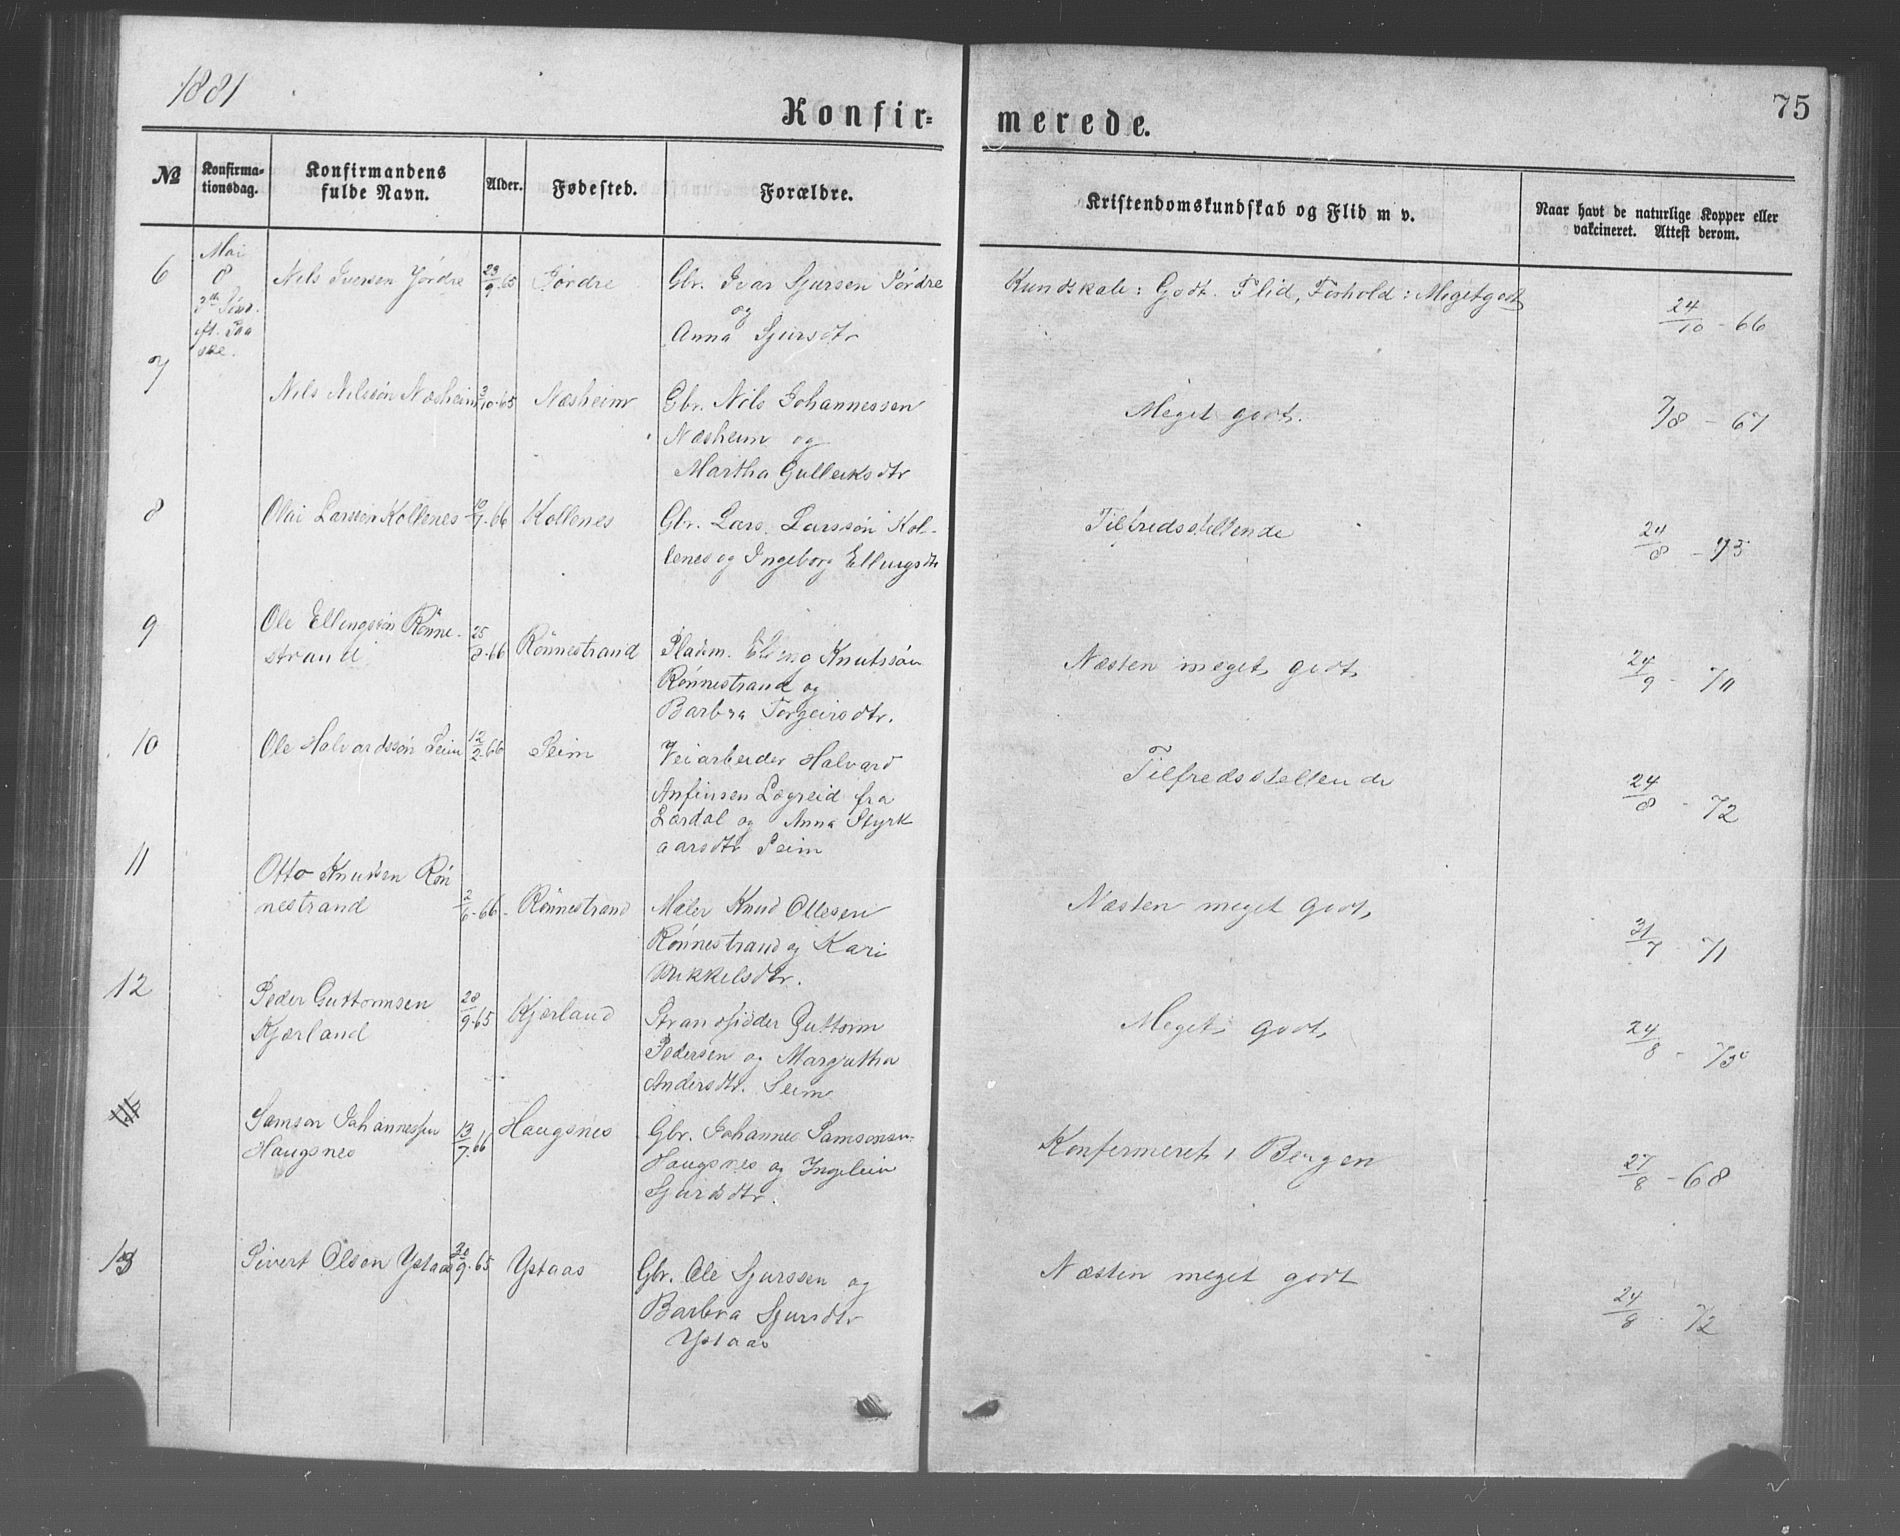 1881
Konfir=
merede.
75
№
Konfirma-
tionsdag.
Konfirmandens
fulde Navn.
Alder.
Fødested.
Forældre.
Kristendomskundskab og Flid m v.
Naar havt de naturlige Kopper eller
vakcineret. Attest derom.
6
Mai
8
3die Sønd.
eft. Paa
ske.
Nils Iversen Jördre
23/9 65
Jördre
Gbr. Ivar Sjursen Jördre
og
Anna Sjursdtr
Kundskab: Godt. Flid, Forhold: Megetgodt
24/10 - 66
7
Nils Nilssön Næsheim
3/10-65
Næsheim
Gbr. Nils Johannessen
Næsheim og
Martha Gulleiksdtr
Meget godt.
7/8 - 67
8
Olai Larssön Kollenes
-66
Kollenes
Gbr. Lars Larssön Kol-
lenes og Ingeborg Ellingsdtr
Tilfredsstillende
24/8 - 73
9
Ole Ellingssön Rönne-
strand
25/8-66
Rönnestrand
Pladsm. Elling Knutssön
Rönnestrand og
Barbra Torgeirsdtr.
Næsten meget godt,
24/9 - 70
10
Ole Halvardssön Seim
12/2 66
Seim
Veiarbeider Halvard
Anfinsen Lægreid fra
Lærdal og Anna Styrk
aarsdtr Seim
Tilfredsstellende
24/8 - 72
11
Otto Knudsen Rön
nestrand
2/6-66-
Rönnestrand
Maler Knud Ollesen
Rönnestrand og Kari
Mikkelsdtr.
Næsten meget godt,
31/7 71
12
Peder Guttormsen
Kjærland
28/9-65
Kjærland
Strandsidder Guttorm
Pedersen og Margretha
Andersdtr. Seim
Meget godt,
24/8 - 73
Samson Johannessen
Haugsnes
13/7.66
Haugsnes
Gbr. Johannes Samsonsen
Haugsnes og Ingeleiv
Sjursdtr.
Konfermeret i Bergen
27/8 - 68
13
Sivert Olson Ystaas
30/9-65
Ystaas
Gbr. Ole Sjurssen og
Barbra Sjursdtr
Ystaas
Næsten meget godt
24/8 - 72